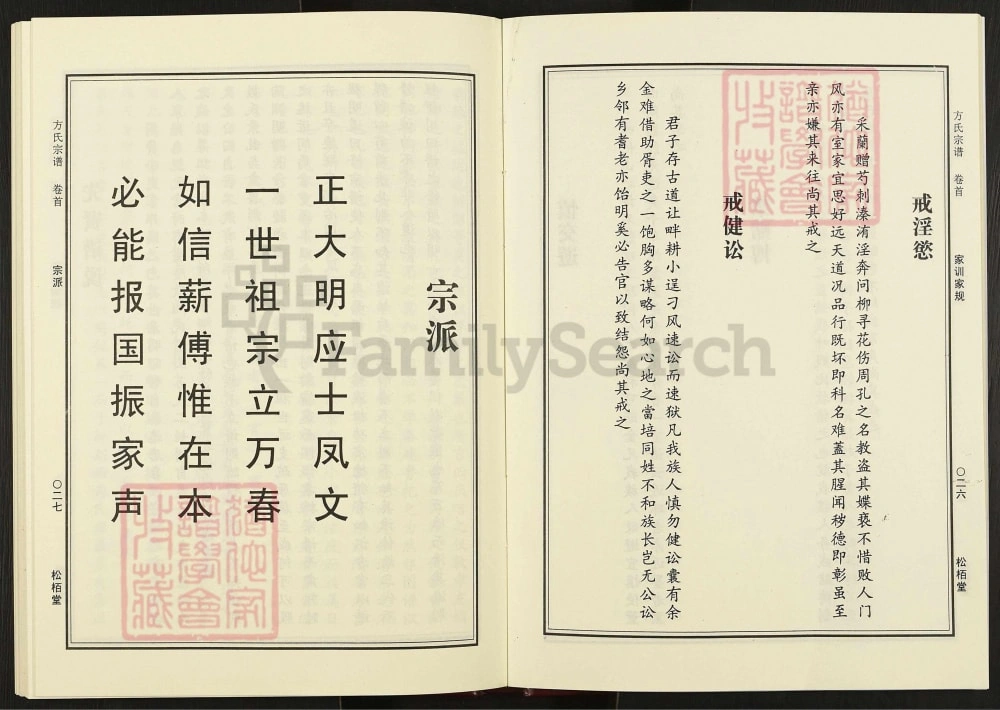 方氏宗谱 卷首 家训家规 〇二六 松栢堂
戒淫慾
采蘭赠芍刺溱洧淫奔问柳寻花伤周孔之名教盗其媟亵不惜败人门
风亦有室家宜思好远天道况品行既坏即科名难蓋其腥闻秽德即彰虽至
亲亦嫌其来往尚其戒之
戒健讼
君子存古道让畔耕小逞刁风速讼而速狱凡我族人慎勿健讼囊有余
金难借助胥吏之一饱胸多谋略何如心地之當培同姓不和族长岂无公讼
乡邻有耆老亦饴明奚必告官以致结怨尚其戒之
宗派
正大明应士凤文
一世祖宗立万春
如信薪傅惟在本
必能报国振家声
方氏宗谱 卷首 宗派 〇二七 松栢堂
FamilySearch